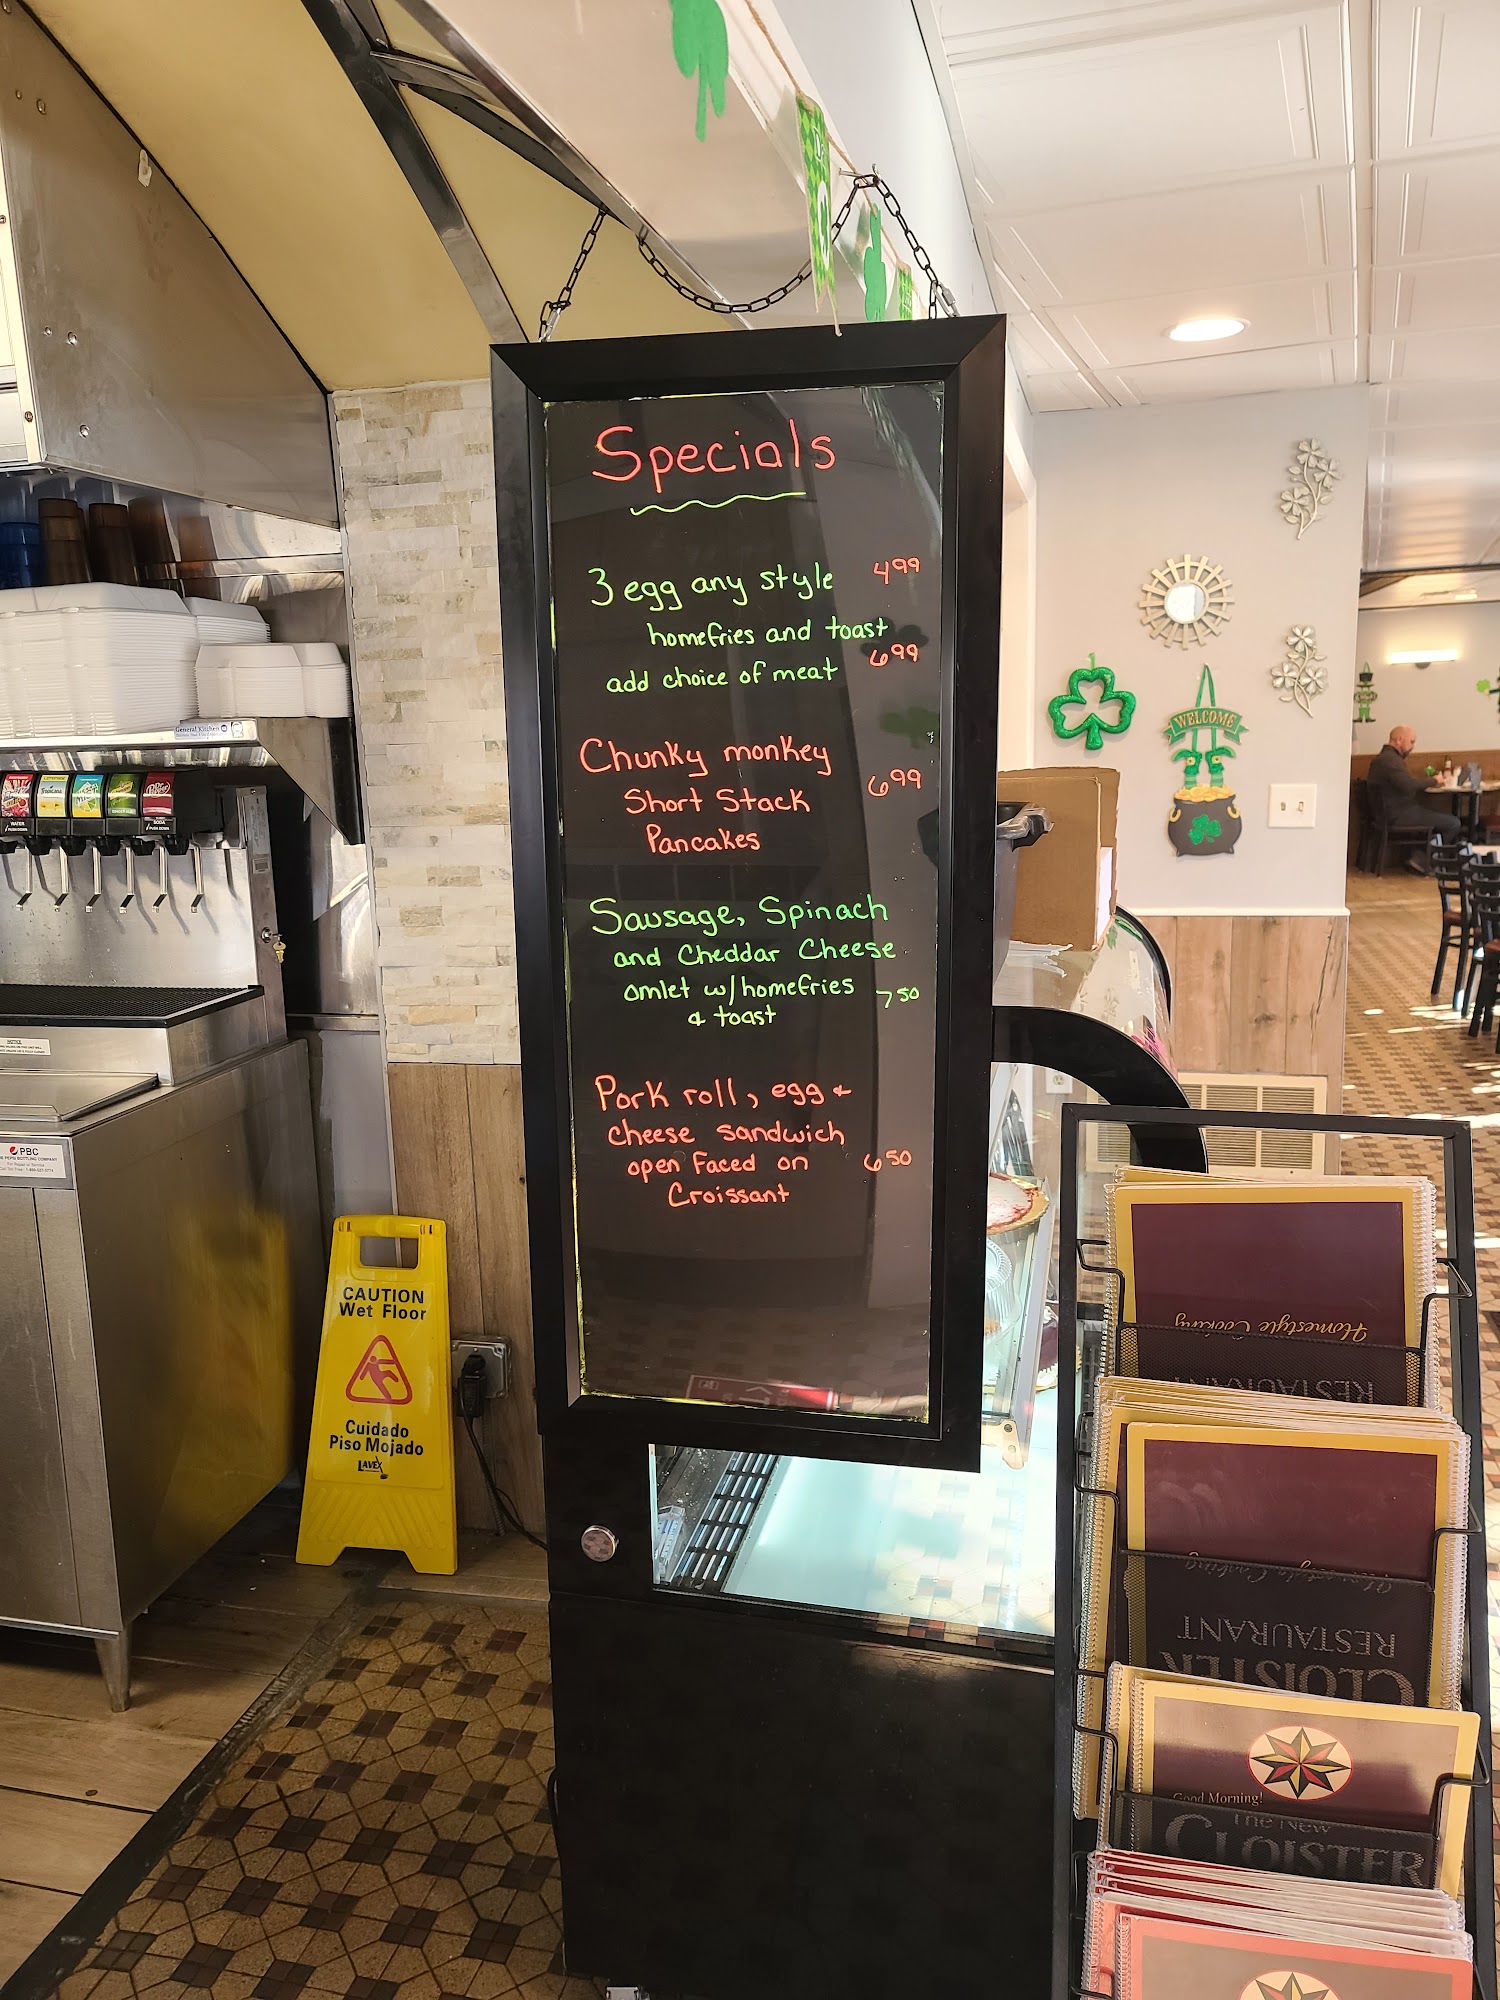 Specials
3 egg any style 4.99
homefries and toast
add choice of meat 6.99
Chunky monkey
Short Stack 6.99
Pancakes
Sausage, Spinach
and Cheddar Cheese
omlet w/homefries 7.50
& toast
Pork roll, egg &
cheese sandwich
open Faced on 6.50
Croissant
WELCOME
General Kitchen
PBC
CAUTION
Wet Floor
Cuidado
Piso Mojado
LAVEX
NOTICE
Homestyle Cooking
RESTAURANT
Homestyle Cooking
RESTAURANT
CLOISTER
Good Morning!
The New
CLOISTER